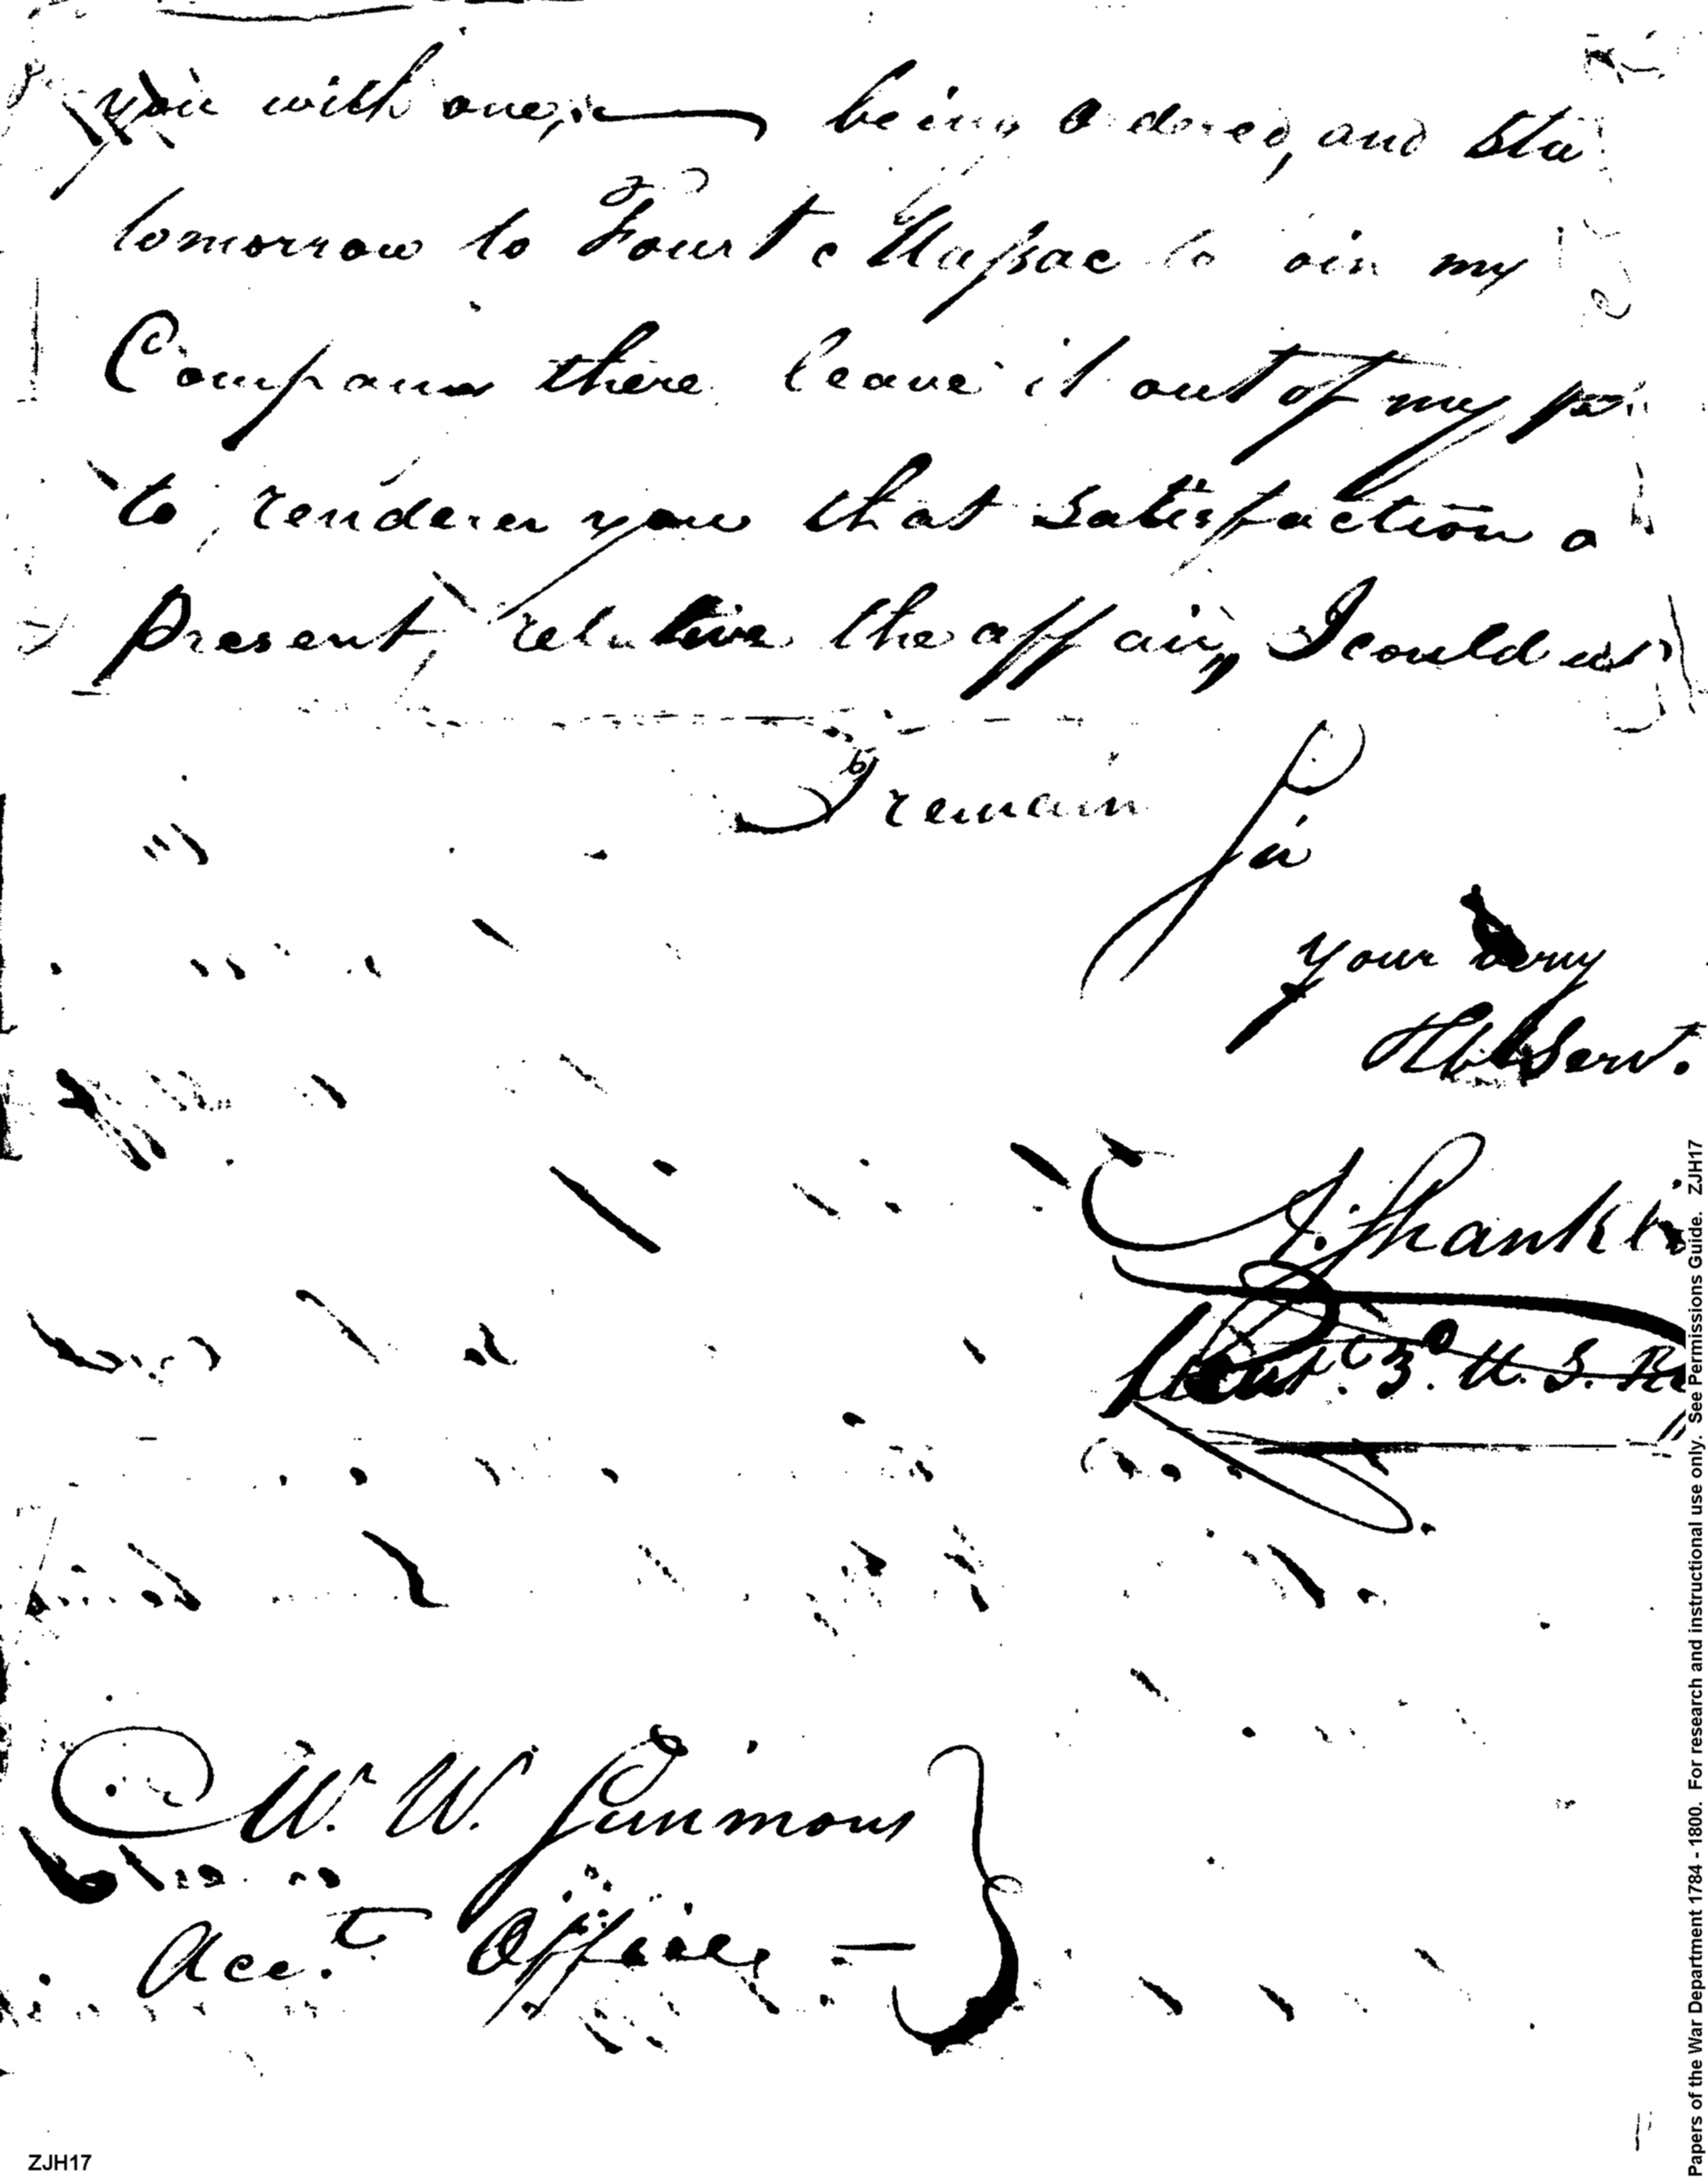 you with one, being ordered, and sta
tomorrow to Fourt Massac to join my
Company there leave it out of my po
to renderer you that satisfaction a
present, relative the affair, I could wish
I remain
Sir
your very
Hble Serv.t
A. Shankli
Lieut. 3.d U. S. R
W. W. Simmons
Acc.t Office —
ZJH17
Papers of the War Department 1784 - 1800. For research and instructional use only. See Permissions Guide. ZJH17